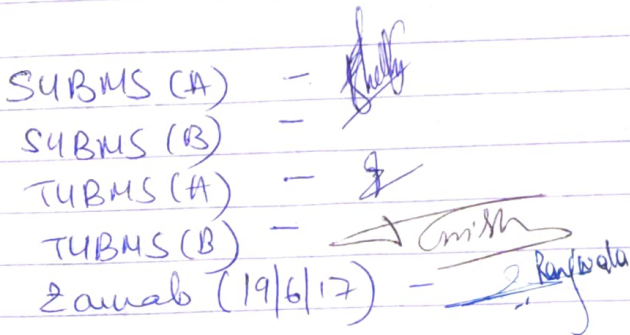 SYBMS (A) -
SYBMS (B) -
TYBMS (A) -
TYBMS (B) -
Zainab (19/6/17) - Rangwala